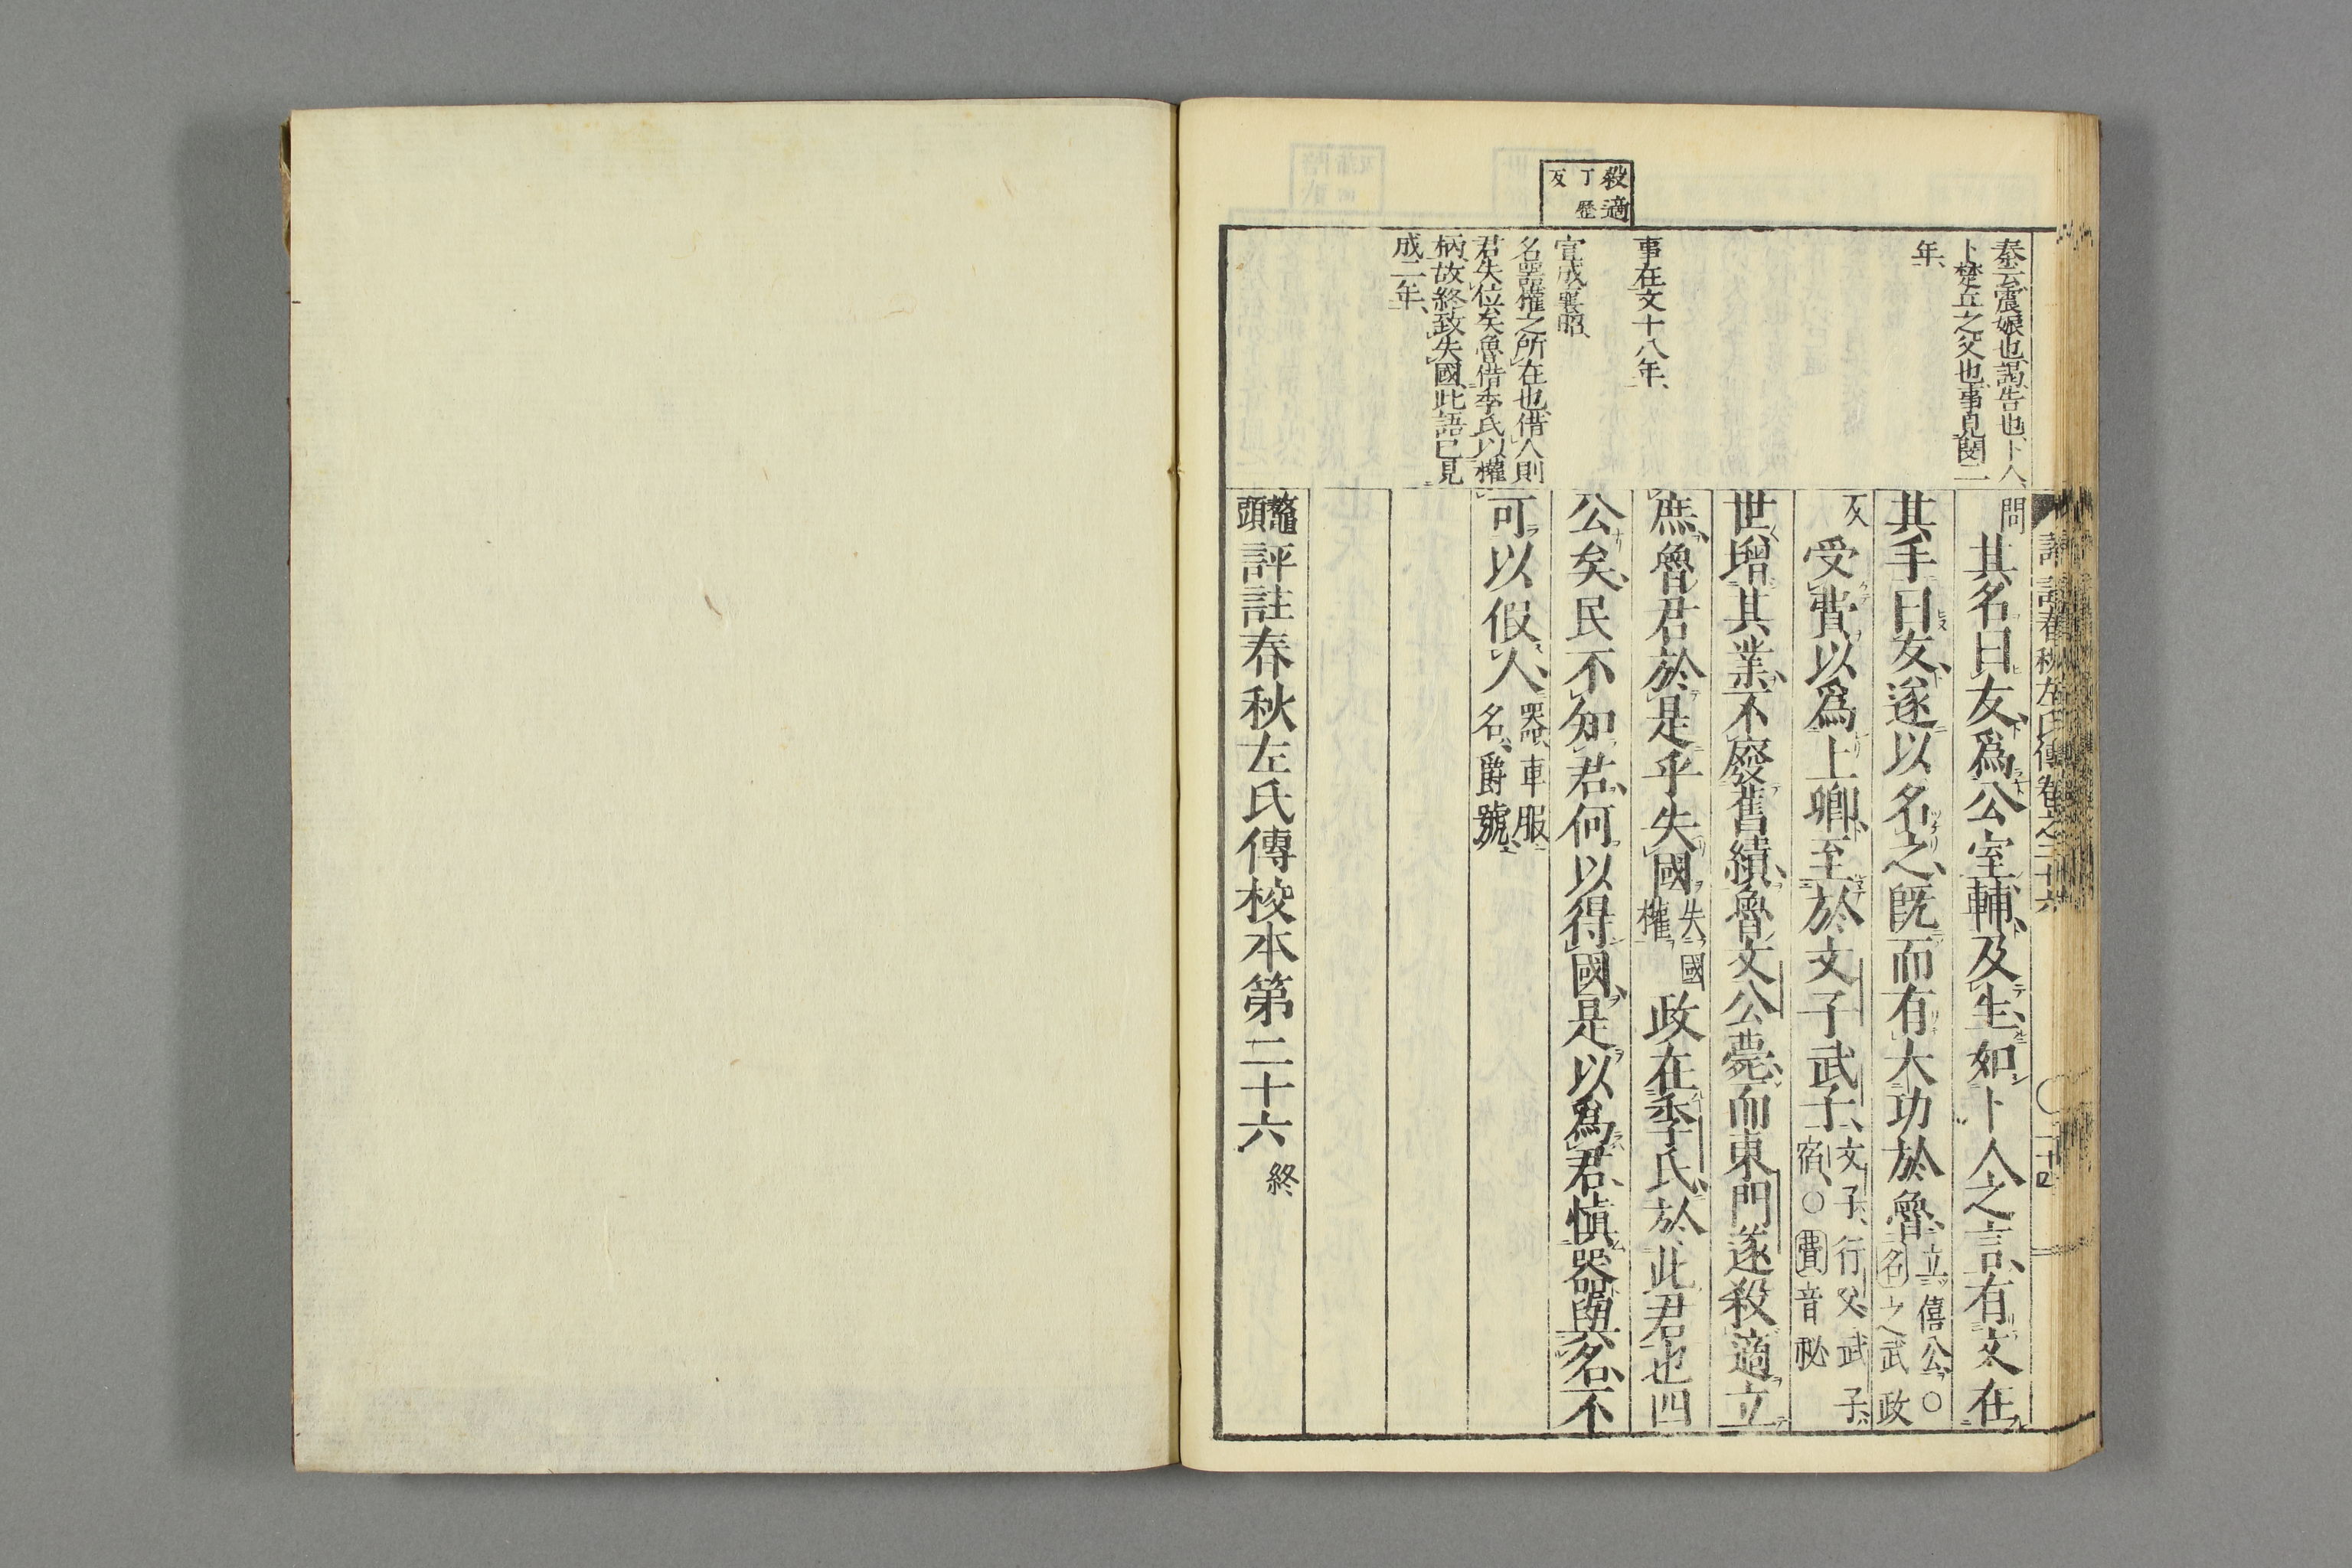 殺適
丁歷
反
秦云震娠也謁告也卜人
卜楚丘之父也事見閔二
年
事在文十八年
宣成襄昭
名器權之所在也借人則
君失位矣魯借季氏以權
柄故終致失國此語已見
成二年
問
其名曰友爲公室輔及生如卜人之言有文在
其手曰友遂以名之既而有大功於魯
立僖公○
名之武政
反
受費以爲上卿至於文子武子
文子行父武子
宿○費音秘
世增其業不廢舊績魯文公薨而東門遂殺適立
庶魯君於是乎失國
失國
權
政在季氏於此君也四
公矣民不知君何以得國是以爲君愼器與名不
可以假人
器車服
名爵號
鼇頭評註春秋左氏傳校本第二十六
終